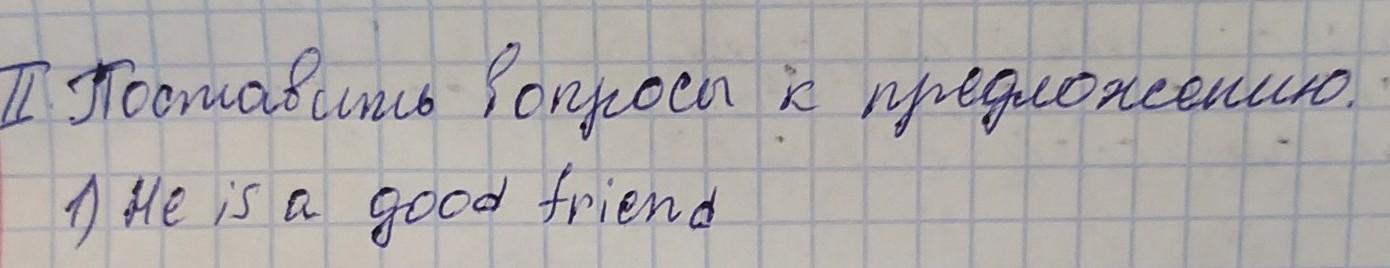 II. Поставить вопросы к предложению.
1) He is a good friend